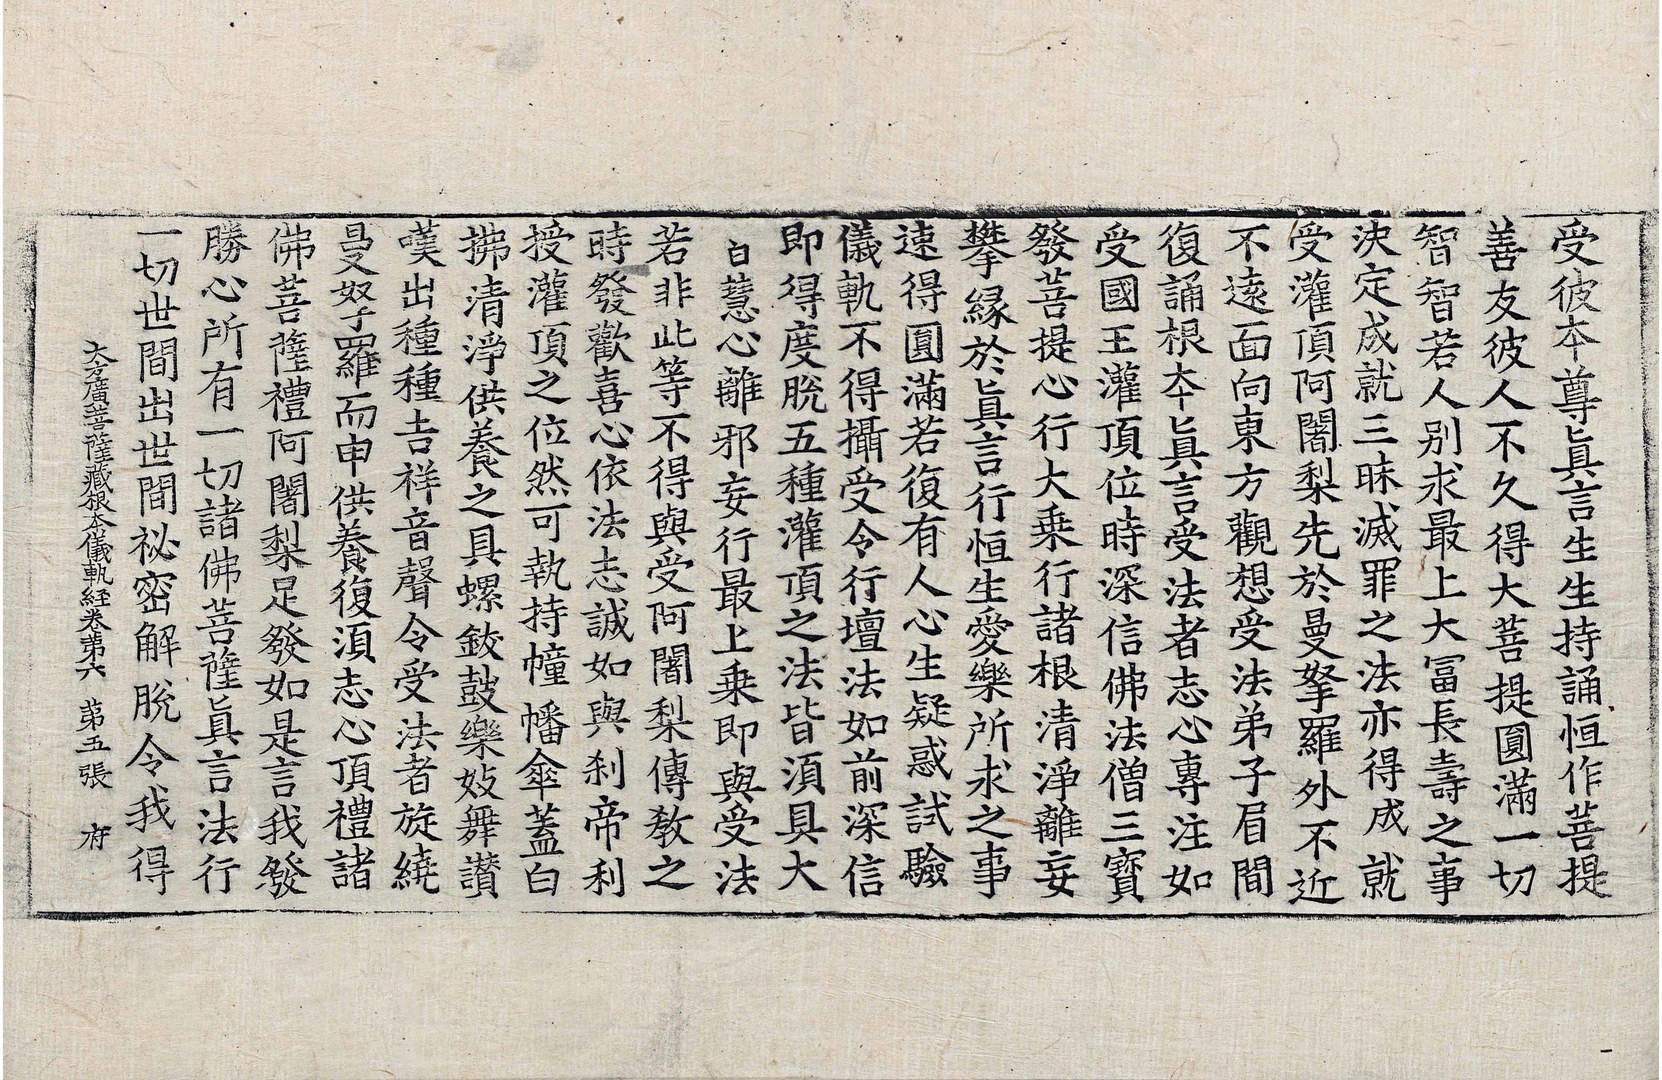 受彼本尊眞言生生持誦恒作菩提
善友彼人不久得大菩提圓滿一切
智智若人別求最上大冨長壽之事
決定成就三昧滅罪之法亦得成就
受灌頂阿闍梨先於曼拏羅外不近
不遠面向東方觀想受法弟子眉間
復誦根本眞言受法者志心專注如
受國王灌頂位時深信佛法僧三寶
發菩提心行大乗行諸根清淨離妄
攀縁於眞言行恒生愛樂所求之事
速得圓滿若復有人心生疑惑試驗
儀軌不得攝受令行壇法如前深信
即得度脫五種灌頂之法皆須具大
白慧心離邪妄行最上乗即與受法
若非此等不得與受阿闍梨傳教之
時發歡喜心依法志誠如與剎帝利
授灌頂之位然可執持幢幡傘蓋白
拂清淨供養之具螺鈸鼓樂妓舞讃
嘆出種種吉祥音聲令受法者旋繞
曼拏羅而申供養復須志心頂禮諸
佛菩薩禮阿闍梨足發如是言我發
勝心所有一切諸佛菩薩眞言法行
一切世間出世間祕密解脫令我得
大方廣菩薩藏根本儀軌経卷第六 第五張 府